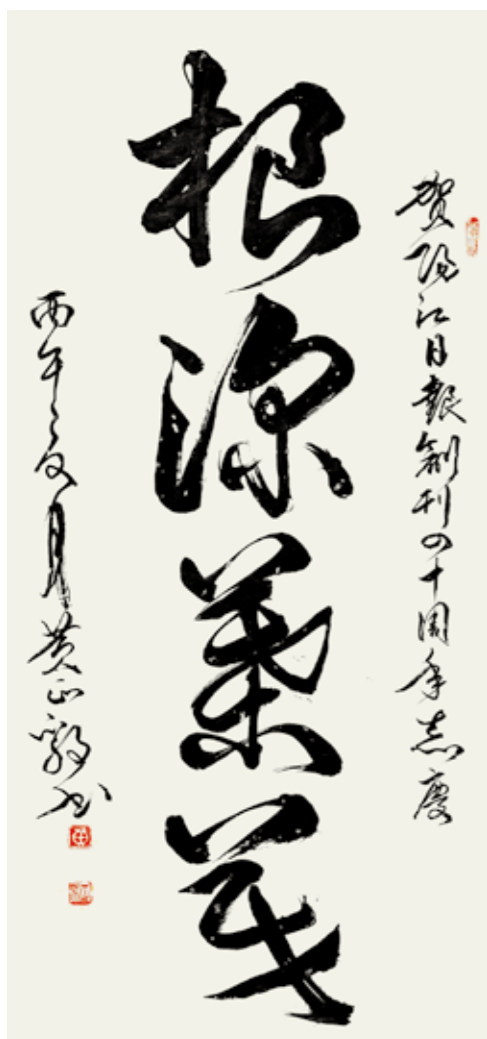 賀陽江日報創刊四十周年志慶
根深葉茂
丙午 月黄正 书